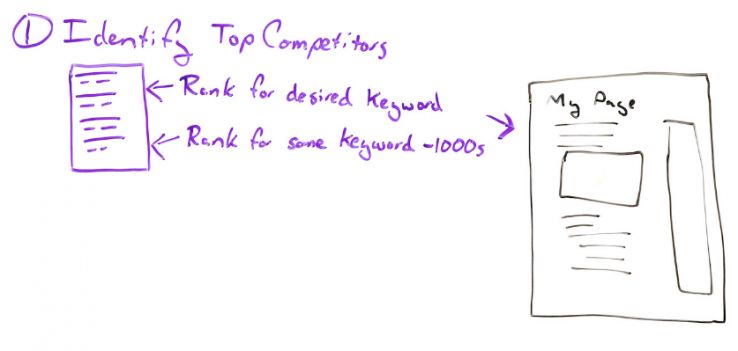 ① Identify Top Competitors
← Rank for desired keyword
← Rank for same keyword ~1000s
My Page